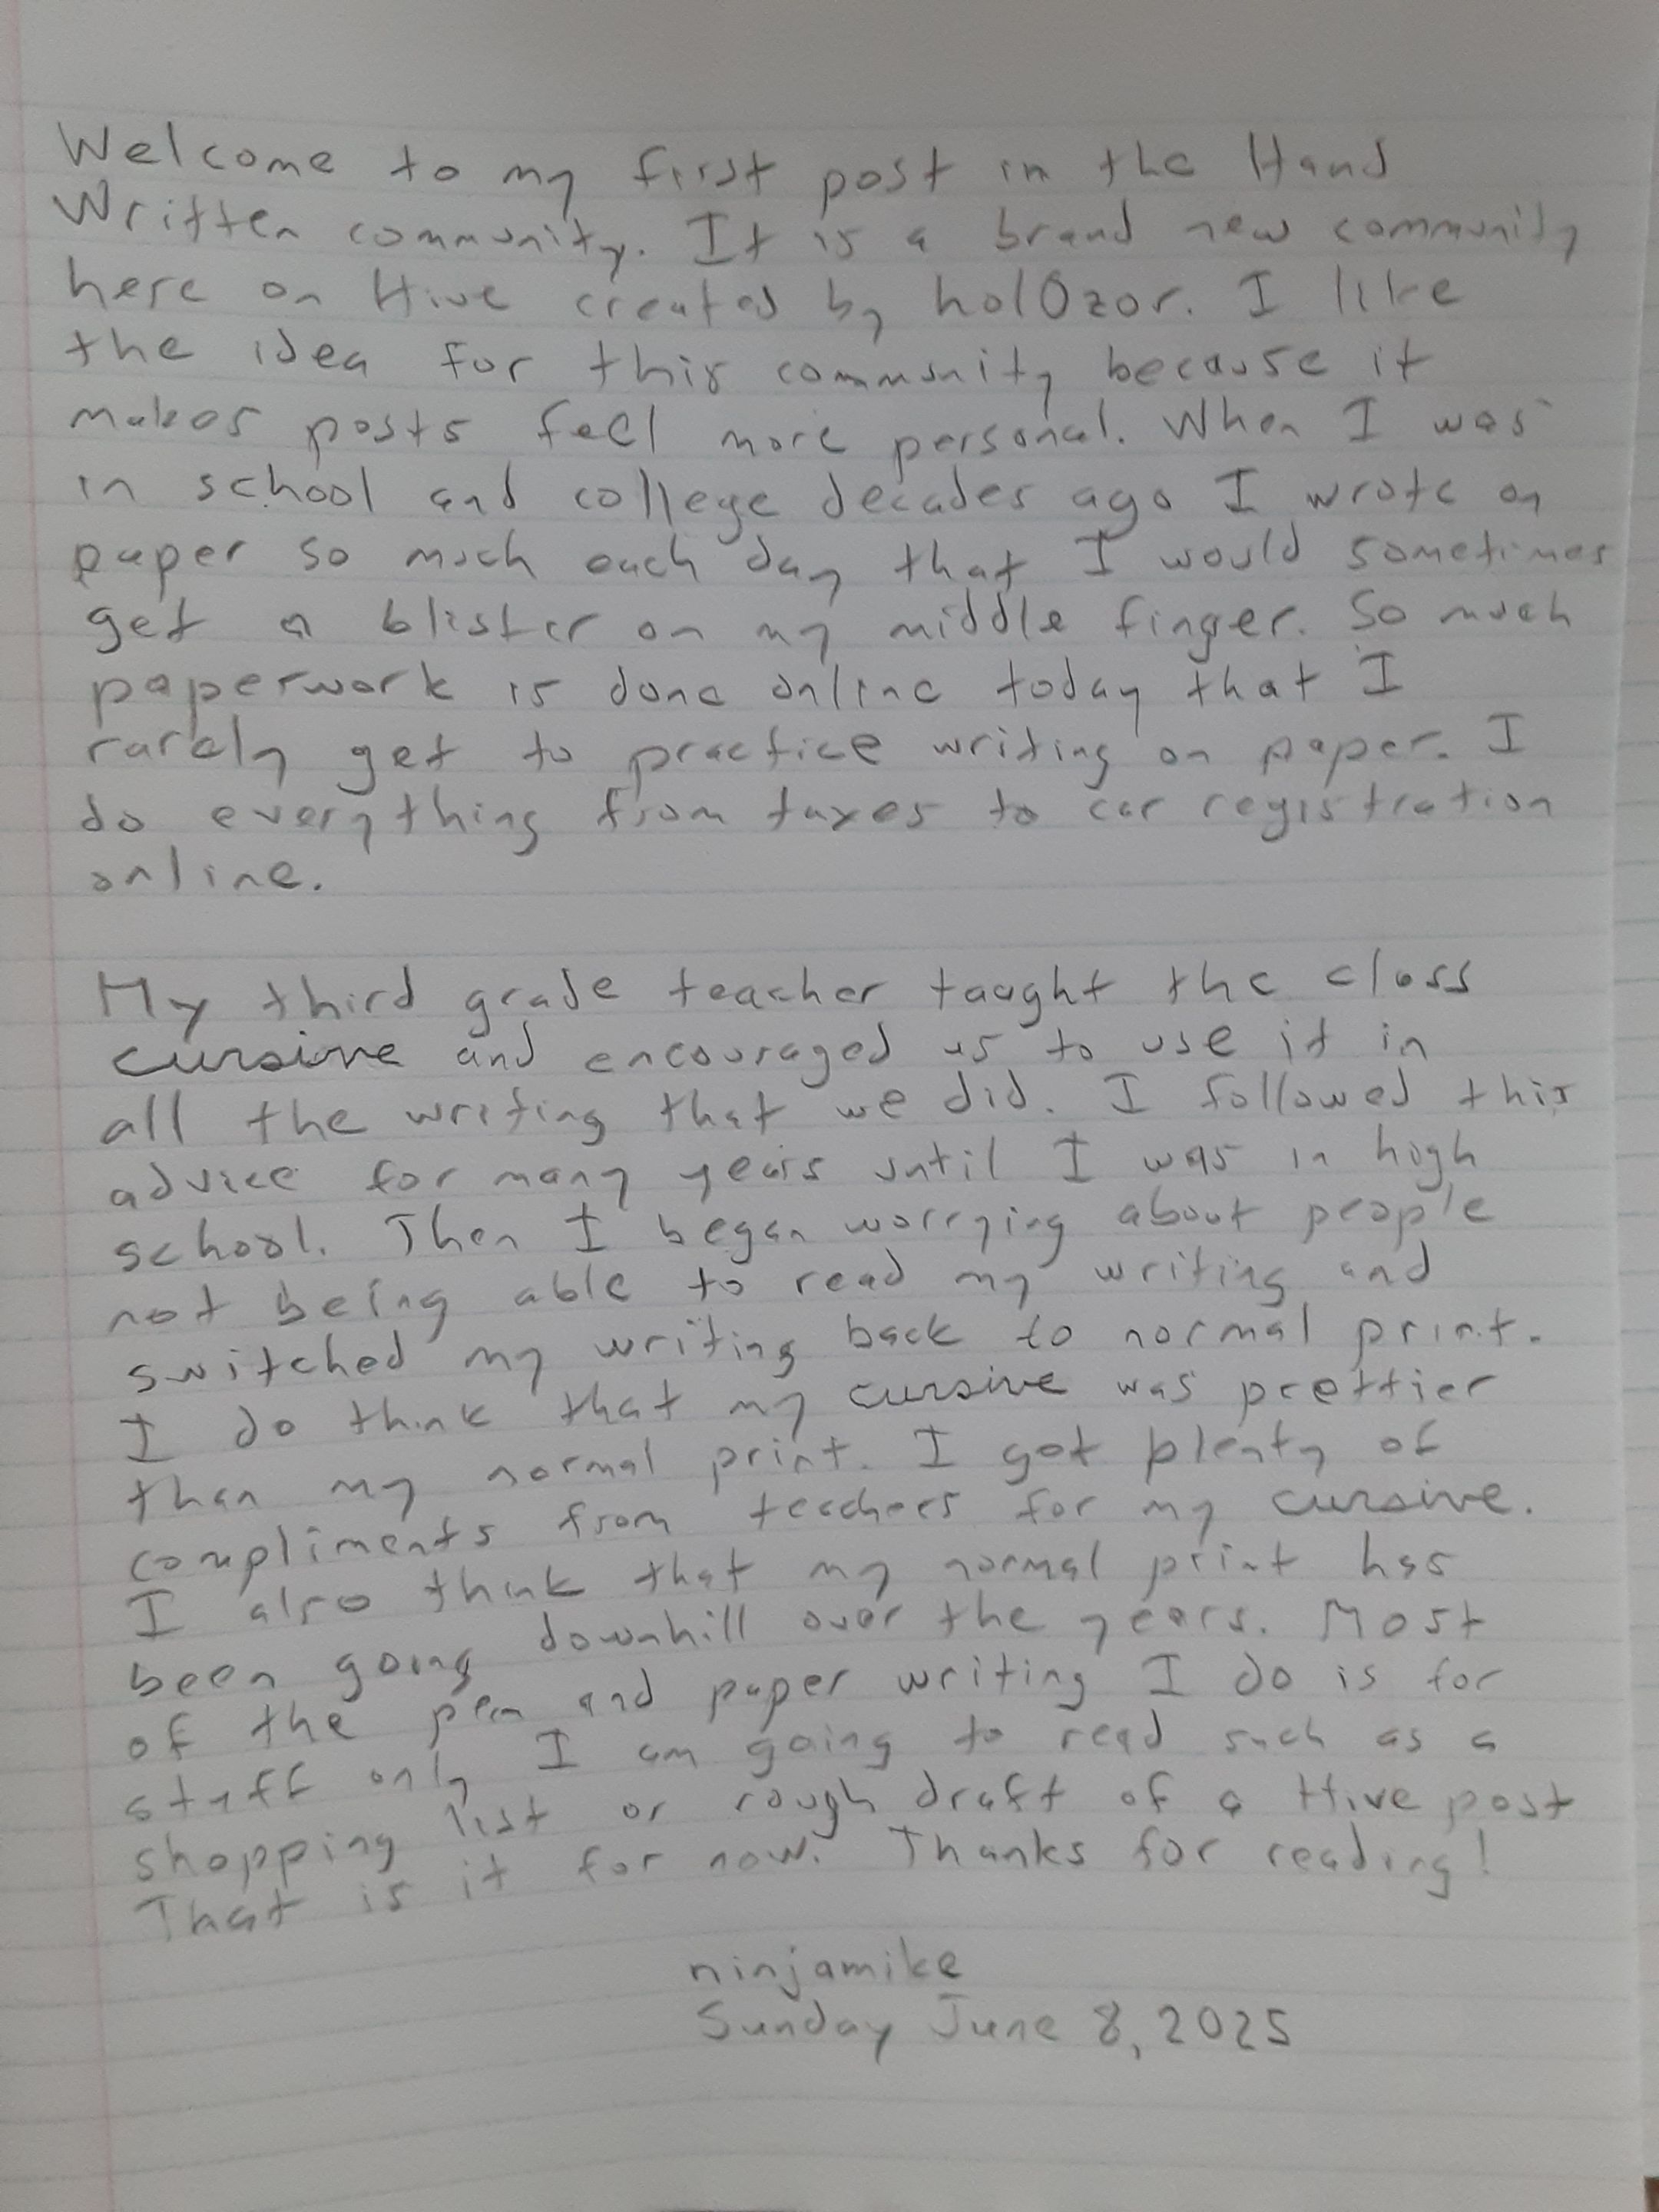 Welcome to my first post in the Hand
Written community. It is a brand new community
here on Hive created by hol0zor. I like
the idea for this community because it
makes posts feel more personal. When I was
in school and college decades ago I wrote on
paper so much each day that I would sometimes
get a blister on my middle finger. So much
paperwork is done online today that I
rarely get to practice writing on paper. I
do everything from taxes to car registration
online.
My third grade teacher taught the class
cursive and encouraged us to use it in
all the writing that we did. I followed this
advice for many years until I was in high
school. Then I began worrying about people
not being able to read my writing and
switched my writing back to normal print.
I do think that my cursive was prettier
than my normal print. I got plenty of
compliments from teachers for my cursive.
I also think that my normal print has
been going downhill over the years. Most
of the pen and paper writing I do is for
stuff only I am going to read such as a
shopping list or rough draft of a Hive post
That is it for now. Thanks for reading!
ninjamike
Sunday June 8, 2025